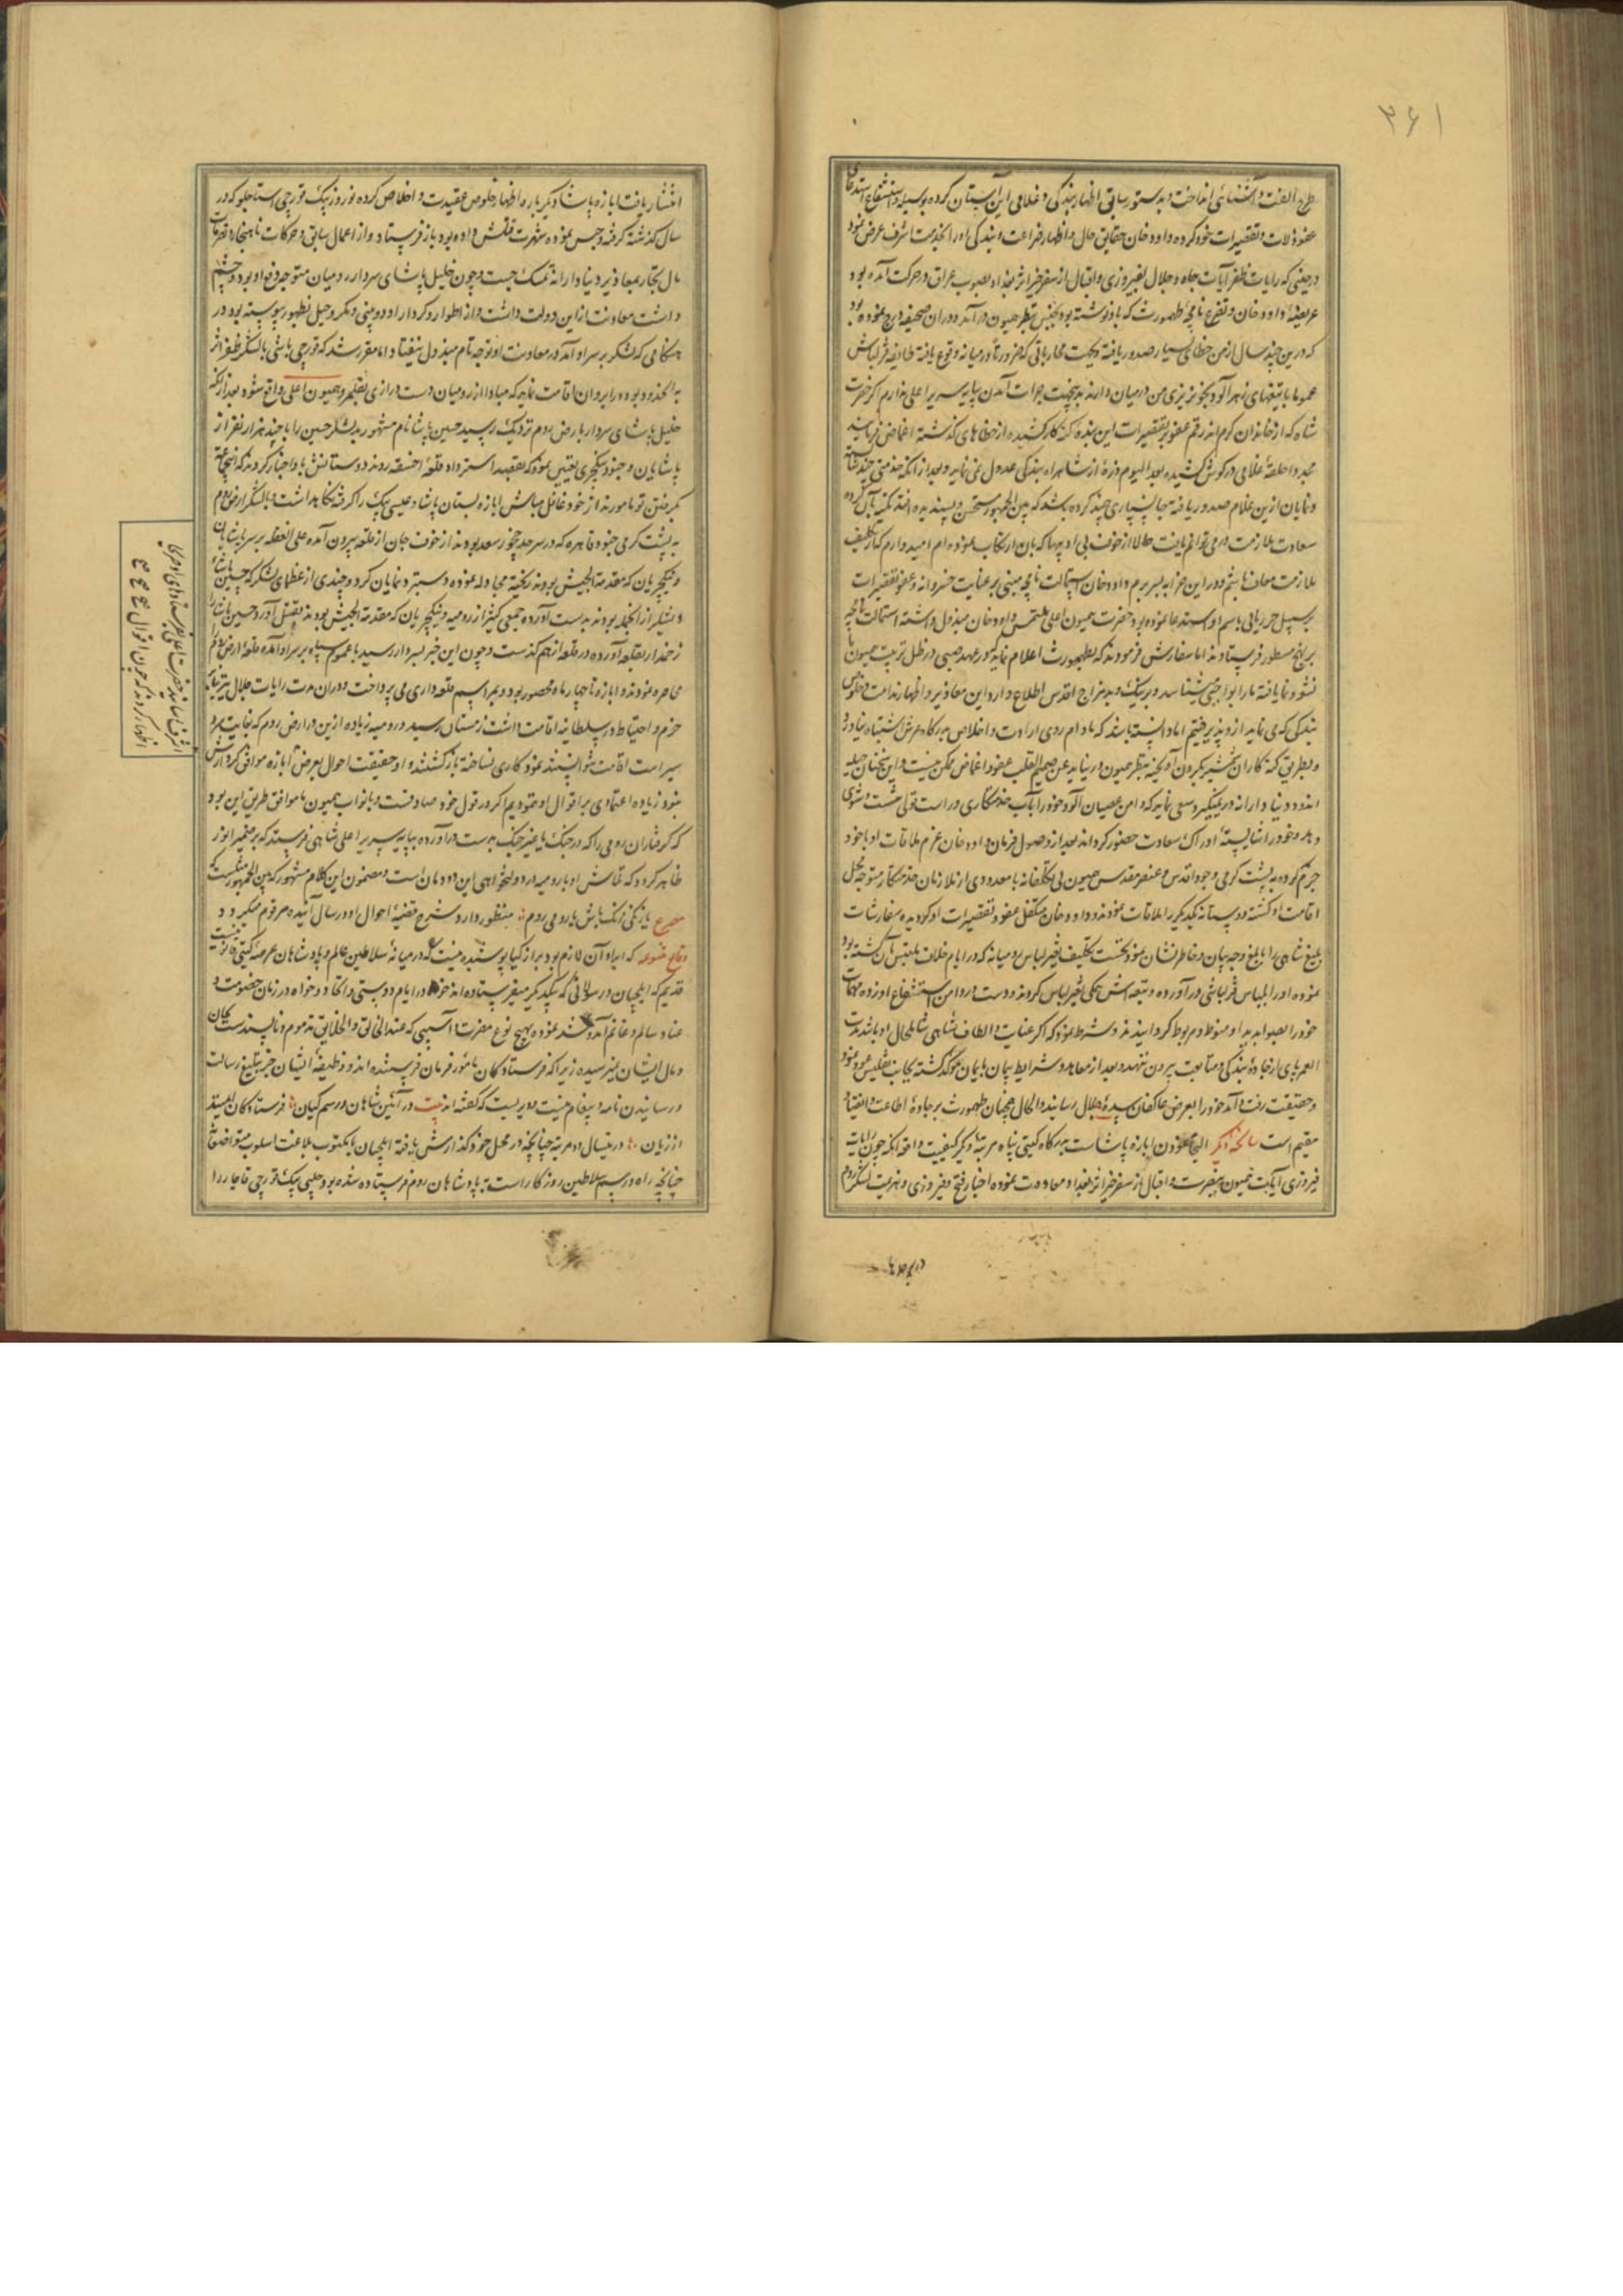 ۳۶۱
طرح الفت و آشنائی انداخت و بدستور سابق اظهار بندگی و غلامی این آستان کرده بوسیله و استشفاع استدعای
عفو زلات و تقصیرات خود کرده داود خان حقایق حال و اظهار ضراعت و بندگی او را بخدمت اشرف عرض نمود
در حینی که رایات ظفر آیات جاه و جلال بفیروزی و اقبال از سفر خیر اثر بغداد بصوب عراق در حرکت آمده بود
عریضه داود خان و تضرع نامچه طهمورث که باو نوشته بود بجنس بنظر همیون در آمد و در آن صحیفه درج نموده بود
که درین چند سال از من خطای بسیار صدور یافته و بجهت محارباتی که ضرورتا در میانه وقوع یافته طایفه قزلباش
عموما با تیغهای زهرآلود بخونریزی من در میان دارند بدینجهت جرات آمدن پایه سریر اعلی ندارم اگر حضرت
شاه که از خاندان کرم اند رقم عفو بر تقصیرات این بنده گنه کار کشیده از خطاهای گذشته اغماض فرمایند
مجددا حلقه غلامی در گوش کشیده بعد الیوم ذره از شاهراه بندگی عدول نمی نماید و بعد از آنکه خدمتی چند شایسته
و نمایان ازین غلام صدور یافته جانسپاری چند کرده باشد که بین الجمهور مستحسن و پسندیده افتد
سعادت ملازمت در می توانم یافت حالا از خوف بی ادبیها که بآن ارتکاب نموده ام امیدوارم که از تکلیف
ملازمت معاف باشم و در این جزا بسر برم و داود خان استمالت نامچه مبنی بر عنایت خسروانه و عفو تقصیرات
برسبیل حرزبانی باسم او استدعا نموده بود حضرت همیون اعلی ملتمس داود خان مبذول داشته استمالت نامچه
بر نهج مسطور فرستادند اما سفارش فرمودند که بطهمورث اعلام نماید که در عهد صبی در ظل تربیت همیون ما
نشو و نما یافته ما را بواجبی شناسد و بر نیک و بد مزاج اقدس اطلاع دارد این معاذیر و اظهار ندامت و خلوص
بندگی که می نماید ازو پذیرفتیم اما دانسته باشد که مادام روی ارادت و اخلاص بدرگاه عرش اشتباه نیاورد
و بطریق گنه کاران شمشیر بگردن آویخته بنظر همیون در نیاید عن صمیم القلب عفو و اغماض ممکن نیست و این سخنان حیله
اندود دنیادارانه در نمیگیرد سعی نماید که دامن عصیان آلود خود را بآب خدمتکاری در است قولی شست و شوی
دهد و خود را شایسته ادراک سعادت حضور گرداند بعد از وصول فرمان داود خان عزم ملاقات او با خود
جزم کرده به پشت گرمی وجود اقدس و عنصر مقدس همیون بی تکلفانه با معدودی از ملازمان خدمتکار متوجه محل
اقامت او گشته دوستانه یکدیگر را ملاقات نمودند و داود خان متکفل عفو و تقصیرات او گردیده سفارشات
بلیغ شاهی را بابلغ وجه بیان و خاطر نشان نمود نخست تکلیف تغییر لباس رومیانه که در ایام خلاف ملبس بآن گشته بود
نموده او را بلباس قزلباشی در آورده و تبعه اش همگی تغییر لباس کردند و دست در دامن استشفاع او زده مهمات
خود را بصوابدید او منوط و مربوط گردانیدند و شرط نمود که اگر عنایت و الطاف شاهی شامل حال او باشد مدت
العمر پای از جاده بندگی و متابعت بیرون ننهد و بعد از معاهد و شرایط پیمان بایمان مؤکد گشته بجانب تفلیس عود نمود
و حقیقت رفت و آمد خود را بعرض عاکفان سده جلال رسانید و الحال همچنان طهمورث بر جاده اطاعت و انقیاد
مقیم است سانحه دیگر التجا نمودن ابازه پاشاست بدرگاه گیتی پناه مرتبه دیگر کیفیت واقعه آنکه چون رایات
فیروزی آیات همیون بنصرت و اقبال از سفر خیر اثر بغداد معاودت نموده اخبار فتح و فیروزی و هزیمت لشکر روم
انتشار یافت ابازه پاشا دیگر باره اظهار خلوص عقیدت و اخلاص کرده نوروز بیک قورچی استاجلو که در
سال گذشته گرفته و حبس نموده شهرت قتلش داده بود باز فرستاد و از اعمال سابق و حرکات ناهنجار و تصرفات
مال تجار بمعاذیر دنیادارانه تمسک جست و چون خلیل پاشای سردار رومیان متوجه دفع او بود و چشم
داشت معاونت ازین دولت داشت و از اطوار و کردار او دورویی و مکر و حیل بظهور پیوسته بود در
هنگامی که لشکر بر سر او آمد در معاونت او توجه تام مبذول نیفتاد اما مقرر شد که قورچی باشی با لشکر ظفر اثر
بآنحدود بوده در ایروان اقامت نماید که مبادا از رومیان دست درازی بقلمرو همیون اعلی واقع شود بعد از آنکه
خلیل پاشای سردار بارض روم نزدیک رسید حسین پاشا نام مشهور بدیشلر حسین را با چند هزار نفر از
پاشایان و جنود ینگچری تعیین نمود که بقصد استرداد قلعه اخسقه روند دوستانش باو اخبار کردند که اینجماعه
بگرفتن تو مأمورند از خود غافل مباش ابازه لبستان پاشا و عیسی بیک را گرفته نگاهداشت و با لشکر ارض روم
به پشت گرمی جنود قاهره که در سرحد چخور سعد بودند از خوف جان از قلعه بیرون آمده علی الغفله بر سر پاشایان
و ینگچریان که مقدمة الجیش بودند ریخته مجادله نموده دستبرد نمایان کرد و چندی از عظمای لشکر که حسین پاشای
دیشلر از آنجمله بودند بدست آورده جمعی کثیر از رومیه و ینگچریان که مقدمة الجیش بودند بقتل آورد و حسین پاشا را
زخمدار بقلعه آورده در قلعه از هم گذشت و چون این خبر بسردار رسید با عموم سپاه بر سر او آمده قلعه ارض روم را
محاصره نمودند و ابازه تا چهار ماه محصور بود و بمراسم قلعه داری می پرداخت و در آن مدت رایات جلال بنا بر
حزم و احتیاط در سلطانیه اقامت داشت زمستان رسید و رومیه زیاده ازین در ارض روم که بغایت سرد
سیر است اقامت نتوانستند نمود کاری نساخته بازگشتند و او حقیقت احوال بعرض
بنود زیاده اعتمادی بر اقوال او ننمودیم اگر در قول خود صادقست و با نواب همیون ما موافق طریق این بود
که گرفتاران رومی را که در جنگ یا بغیر جنگ بدست در آورده بپایه سریر اعلی شاهی فرستد که بر ضمیر انور
ظاهر گردد که نه او با رومیه دارد و دلخواهی این دودمان است و مضمون این کلام مشهور که بین الجمهور
مصرع یا زنگی زنگ باش یا رومی روم منظور دارد و شرح قضیه احوال او در سال آینده مرقوم میگردد
وقایع متنوعه که ایراد آن لازم بود بر ازکیا پوشیده نیست که در میانه سلاطین عالم و پادشاهان عرصه گیتی قانونیست
قدیم که ایلچیان و رسولانی که بیکدیگر میفرستاده اند خواه در ایام دوستی و اتحاد و خواه در زمان خصومت و
عناد سالم و غانم آمد و شد نموده بهیچ نوع مضرت و آسیبی که عند الخالق و الخلایق مذموم و ناپسندست بجان
و مال ایشان نمیرسیده زیرا که فرستادگان مأمور فرمان فرستنده اند و وظیفه ایشان جز تبلیغ رسالت
و رسانیدن نامه و پیغام نیست و دیریست که گفته اند بیت در آئین شاهان و رسم کیان فرستادگان ایمنند
از زیان در ینسال دو مرتبه چنانچه در محل خود گذارش یافته ایلچیان با مکتوب بلاغت اسلوب
چنانچه راه و رسم سلاطین روزگار است به پادشاهان روم فرستاده شده بود چلپی بیک قورچی قاجار را
اظهار کردند که چون اقوال